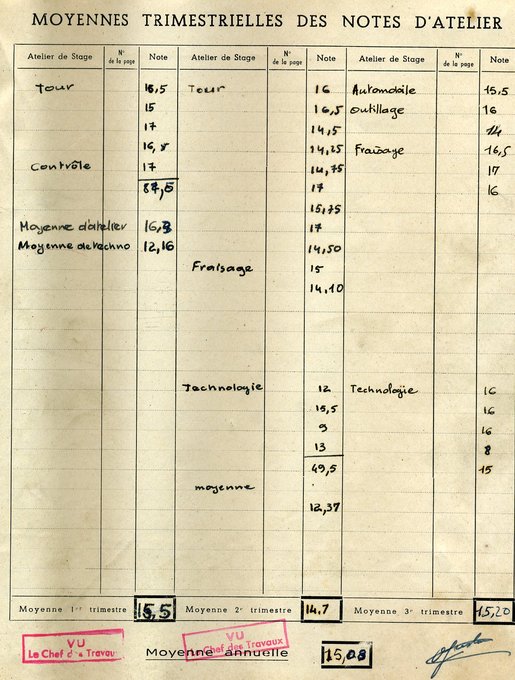 MOYENNES TRIMESTRIELLES DES NOTES D'ATELIER
Atelier de Stage N° de la page Note Atelier de Stage N° de la page Note Atelier de Stage N° de la page Note
Tour 15,5 Tour 16 Automobile 15,5
15 16,5 Outillage 16
17 14,5 14
16,5 14,25 Fraisage 16,5
Contrôle 17 14,75 17
87,5 17 16
15,75
Moyenne d'atelier 16,3 17
Moyenne de techno 12,16 14,50
Fraisage 15
14,10
Technologie 12 Technologie 16
15,5 16
9 16
13 8
49,5 15
moyenne
12,37
Moyenne 1er trimestre 15,5 Moyenne 2e trimestre 14.7 Moyenne 3e trimestre 15,20
VU
Le Chef des Travaux
VU
Le Chef des Travaux
Moyenne annuelle 15,08